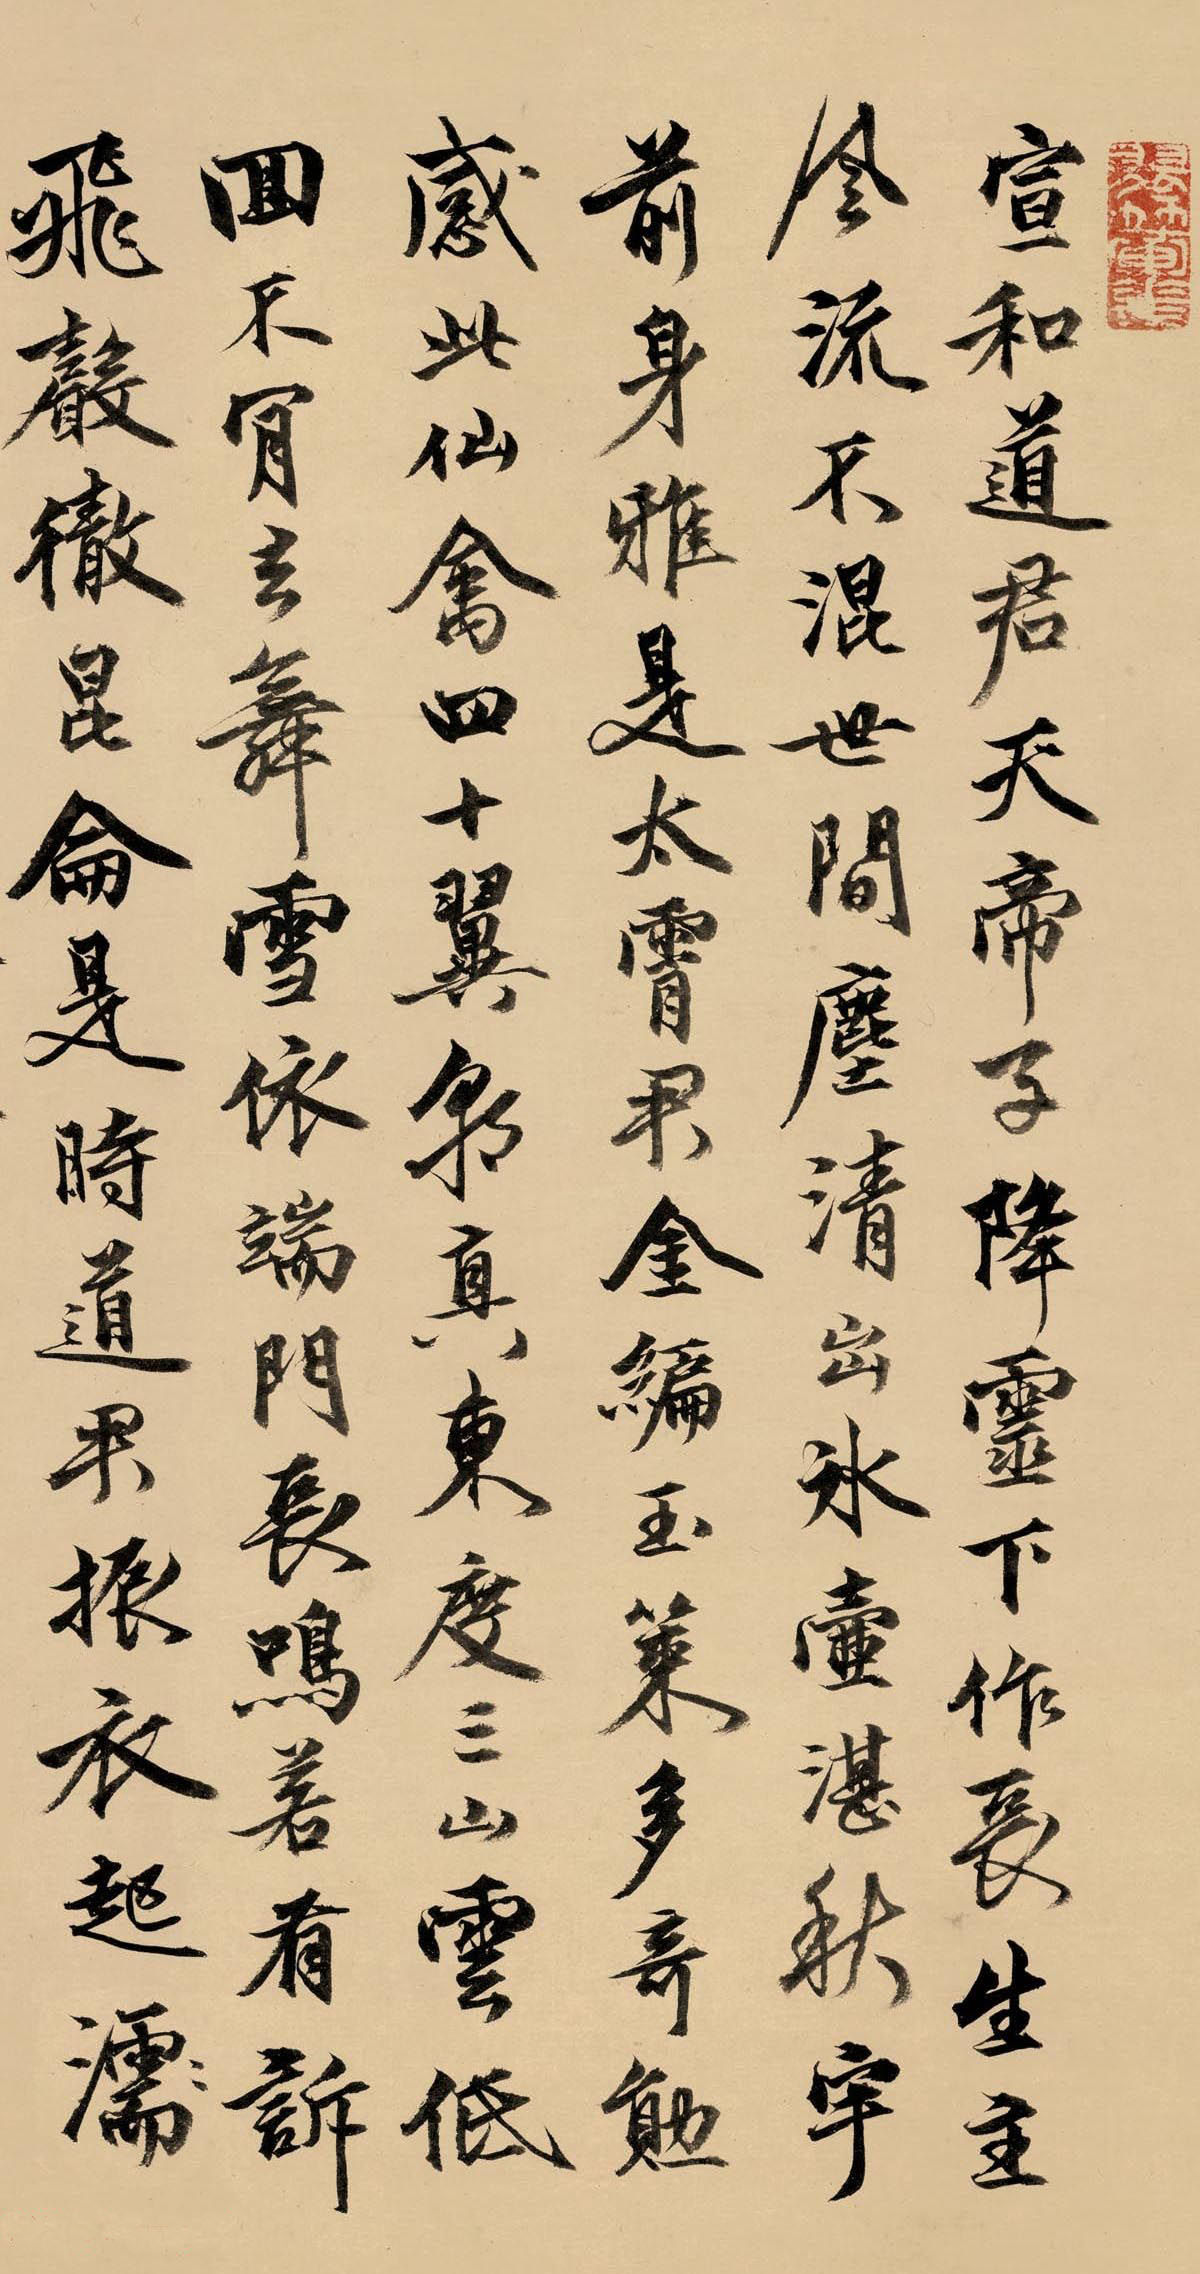 宣和道君天帝子降靈下作長生主
風流不混世間塵清出冰壺湛秋宇
前身雅是太霄君金編玉策多奇勳
感此仙禽四十翼朝真東度三山雲低
回不肯去舞雪依端門長鳴若有訴
飛聲徹昆侖是時道君振衣起濡